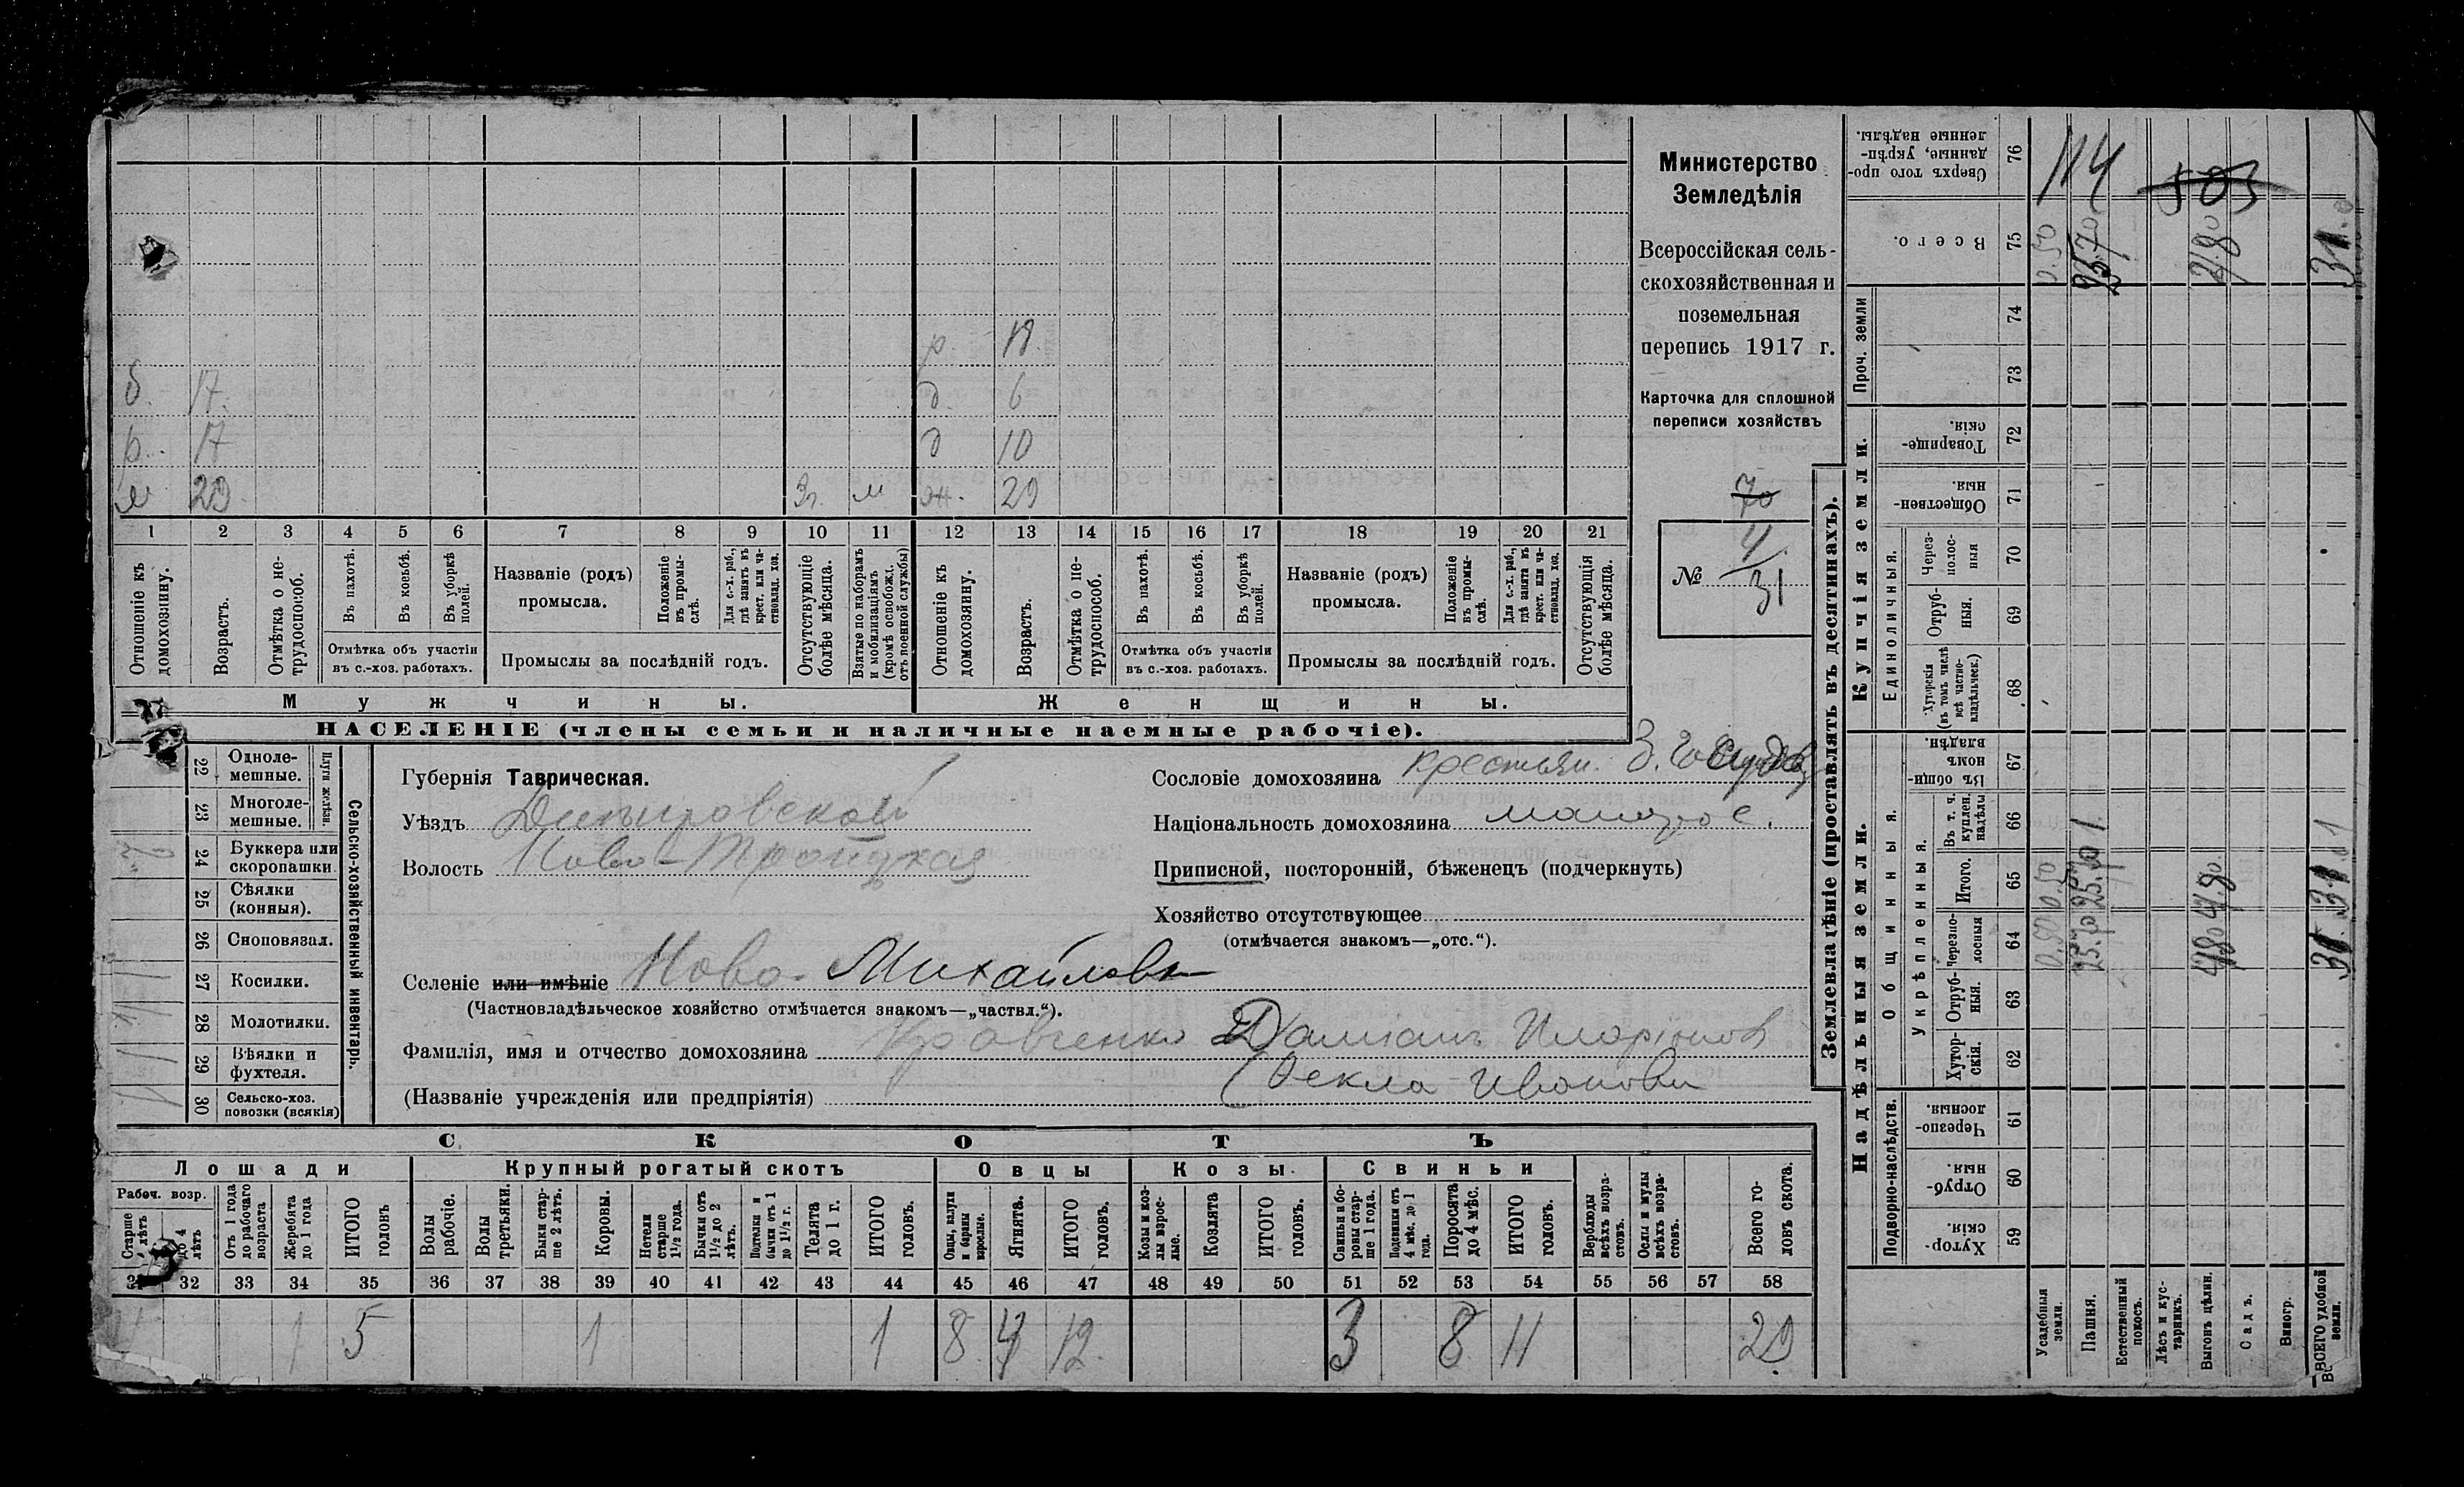 Министерство
Земледѣлія
Всероссійская сель-
скохозяйственная и
поземельная
перепись 1917 г.
Карточка для сплошной
переписи хозяйствъ
70
№ 4/31
р.
б. 17. д. 6
р. 17 д 10
29 Зп. м ж. 29
1 2 3 4 5 6 7 8 9 10 11 12 13 14 15 16 17 18 19 20 21
Отношеніе къ домохозяину.
Возрастъ.
Отмѣтка о не-трудоспособ.
Въ пахотѣ.
Въ косьбѣ.
Въ уборкѣ полей.
Отмѣтка объ участіи
въ с.-хоз. работахъ.
Названіе (родъ)
промысла.
Положеніе въ промы-слѣ.
Для с.-х. раб., гдѣ занятъ въ крест. или ча-стновлад. хоз.
Промыслы за послѣдній годъ.
Отсутствующіе болѣе мѣсяца.
Взятые по наборамъ и мобилизаціямъ (кромѣ освобожд. отъ военной службы)
Отношеніе къ домохозяину.
Возрастъ.
Отмѣтка о не-трудоспособ.
Въ пахотѣ.
Въ косьбѣ.
Въ уборкѣ полей.
Отмѣтка объ участіи
въ с.-хоз. работахъ.
Названіе (родъ)
промысла.
Положеніе въ промы-слѣ.
Для с.-х. раб., гдѣ занята въ крест. или ча-стновлад. хоз.
Промыслы за послѣдній годъ.
Отсутствующія болѣе мѣсяца.
Мужчины. Женщины.
НАСЕЛЕНІЕ (члены семьи и наличные наемные рабочіе).
22 Одноле-мешные.
23 Многоле-мешные.
Плуги желѣзн.
24 Буккера или скоропашки
25 Сѣялки (конныя).
26 Сноповязал.
27 Косилки.
28 Молотилки.
29 Вѣялки и фухтеля.
30 Сельско-хоз. повозки (всякія)
Сельско-хозяйственный инвентарь.
Губернія Таврическая.
Уѣздъ Днѣпровской
Волость Ново-Троицкая
Селеніе или имѣніе Ново-Михайловк
(Частновладѣльческое хозяйство отмѣчается знакомъ—„частвл.“).
Фамилія, имя и отчество домохозяина Кравченко Даміанъ Иларіонов
(Фекла Иванови
(Названіе учрежденія или предпріятія)
Сословіе домохозяина крестьян.
Національность домохозяина малорос.
Приписной, посторонній, бѣженецъ (подчеркнуть)
Хозяйство отсутствующее
(отмѣчается знакомъ—„отс.“).
СКОТЪ
Лошади Крупный рогатый скотъ Овцы Козы Свиньи
Рабоч. возр.
Старше лѣтъ
до 4 лѣтъ
Отъ 1 года до рабочаго возраста
Жеребята до 1 года
ИТОГО головъ
Волы рабочіе.
Волы третьяки.
Быки стар-ше 2 лѣтъ.
Коровы.
Нетели старше 1½ года.
Бычки отъ 1½ до 2 лѣтъ.
Подтелки и бычки отъ 1 до 1½ г.
Телята до 1 г.
ИТОГО головъ.
Овцы, валухи и бараны взрослые.
Ягнята.
ИТОГО головъ.
Козы и коз-лы взрос-лые.
Козлята
ИТОГО головъ.
Свиньи и бо-ровы стар-ше 1 года.
Подсвинки отъ 4 мѣс. до 1 года.
Поросята до 4 мѣс.
ИТОГО головъ.
Верблюды всѣхъ возра-стовъ.
Ослы и мулы всѣхъ возра-стовъ.
Всего го-ловъ скота.
32 33 34 35 36 37 38 39 40 41 42 43 44 45 46 47 48 49 50 51 52 53 54 55 56 57 58
1 5 1 1 8 4 12 3 8 11 29
Землевладѣніе (проставлять въ десятинахъ).
Надѣльныя земли. Купчія земли. Проч. земли
Подворно-наслѣдств.
Общинныя.
Укрѣпленныя.
Единоличныя.
59 Хутор-скія.
60 Отруб-ныя.
61 Черезпо-лосныя.
62 Хутор-скія.
63 Отруб-ныя.
64 Черезпо-лосныя
65 Итого.
66 Въ т. ч. куплен. надѣлы
67 Въ общин-номъ владѣн.
68 Хуторскія (въ томъ числѣ всѣ частно-владѣльческ.)
69 Отруб-ныя.
70 Через-полос-ныя
71 Обществен-ныя.
72 Товарище-скія.
73
74
75 Всего.
76 Сверхъ того про-данные, укрѣп-ленные надѣлы.
Усадебныя земли. 0.50 0.50 0.50
Пашня. 25.70 25.70 25.70
Естественный покосъ.
Лѣсъ и кус-тарникъ.
Выгонъ цѣлин. 4.80 4.80 4.80
Садъ.
Виногр.
ВСЕГО удобной земли. 31 31 31
114
503